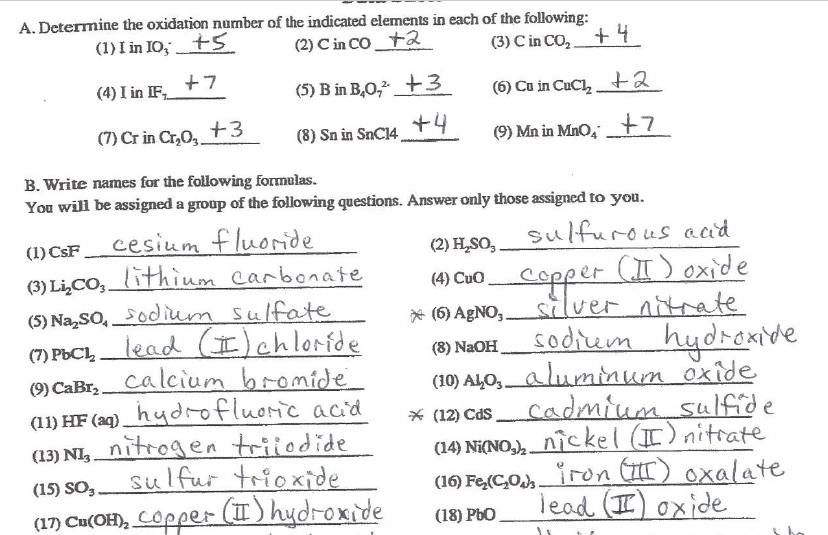 A. Determine the oxidation number of the indicated elements in each of the following:
(1) I in IO₃⁻ +5 (2) C in CO +2 (3) C in CO₂ +4
(4) I in IF₇ +7 (5) B in B₄O₇²⁻ +3 (6) Cu in CuCl₂ +2
(7) Cr in Cr₂O₃ +3 (8) Sn in SnCl4 +4 (9) Mn in MnO₄⁻ +7
B. Write names for the following formulas.
You will be assigned a group of the following questions. Answer only those assigned to you.
(1) CsF cesium fluoride (2) H₂SO₃ sulfurous acid
(3) Li₂CO₃ lithium carbonate (4) CuO copper (II) oxide
(5) Na₂SO₄ sodium sulfate * (6) AgNO₃ silver nitrate
(7) PbCl₂ lead (II) chloride (8) NaOH sodium hydroxide
(9) CaBr₂ calcium bromide (10) Al₂O₃ aluminum oxide
(11) HF (aq) hydrofluoric acid * (12) CdS cadmium sulfide
(13) NI₃ nitrogen triiodide (14) Ni(NO₃)₂ nickel (II) nitrate
(15) SO₃ sulfur trioxide (16) Fe₂(C₂O₄)₃ iron (III) oxalate
(17) Cu(OH)₂ copper (II) hydroxide (18) PbO lead (II) oxide